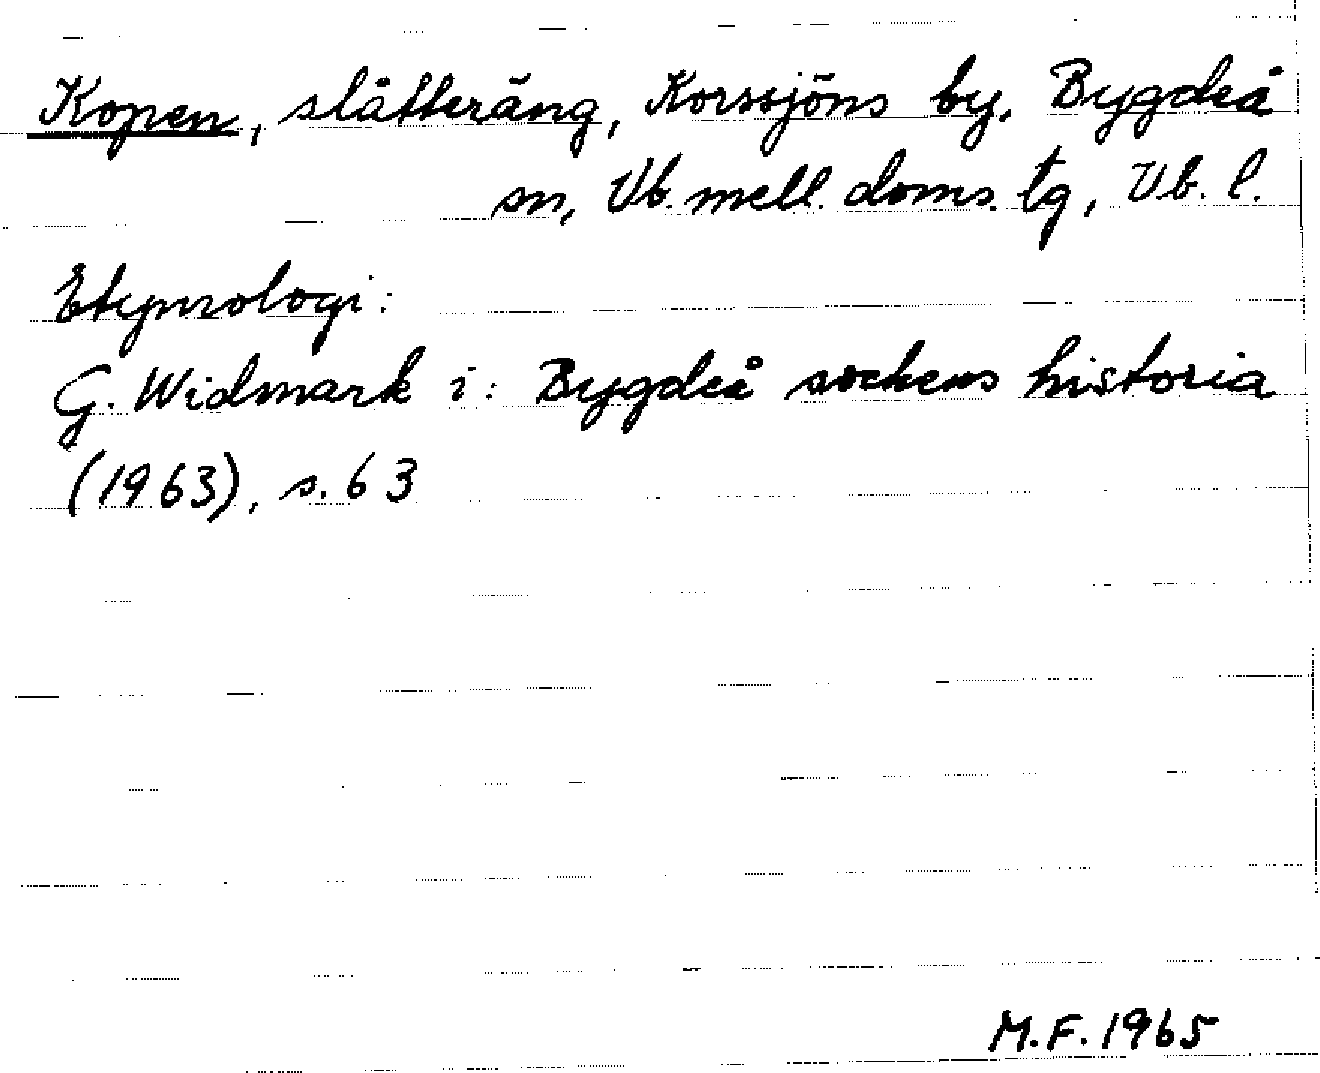 Kopen, slåtteräng, Korssjöns by, Bygdeå
sn, Vb. mell. doms. tg, Vb. l.
Etymologi:
G. Widmark i: Bygdeå sockens historia
(1963), s. 63
M.F. 1965